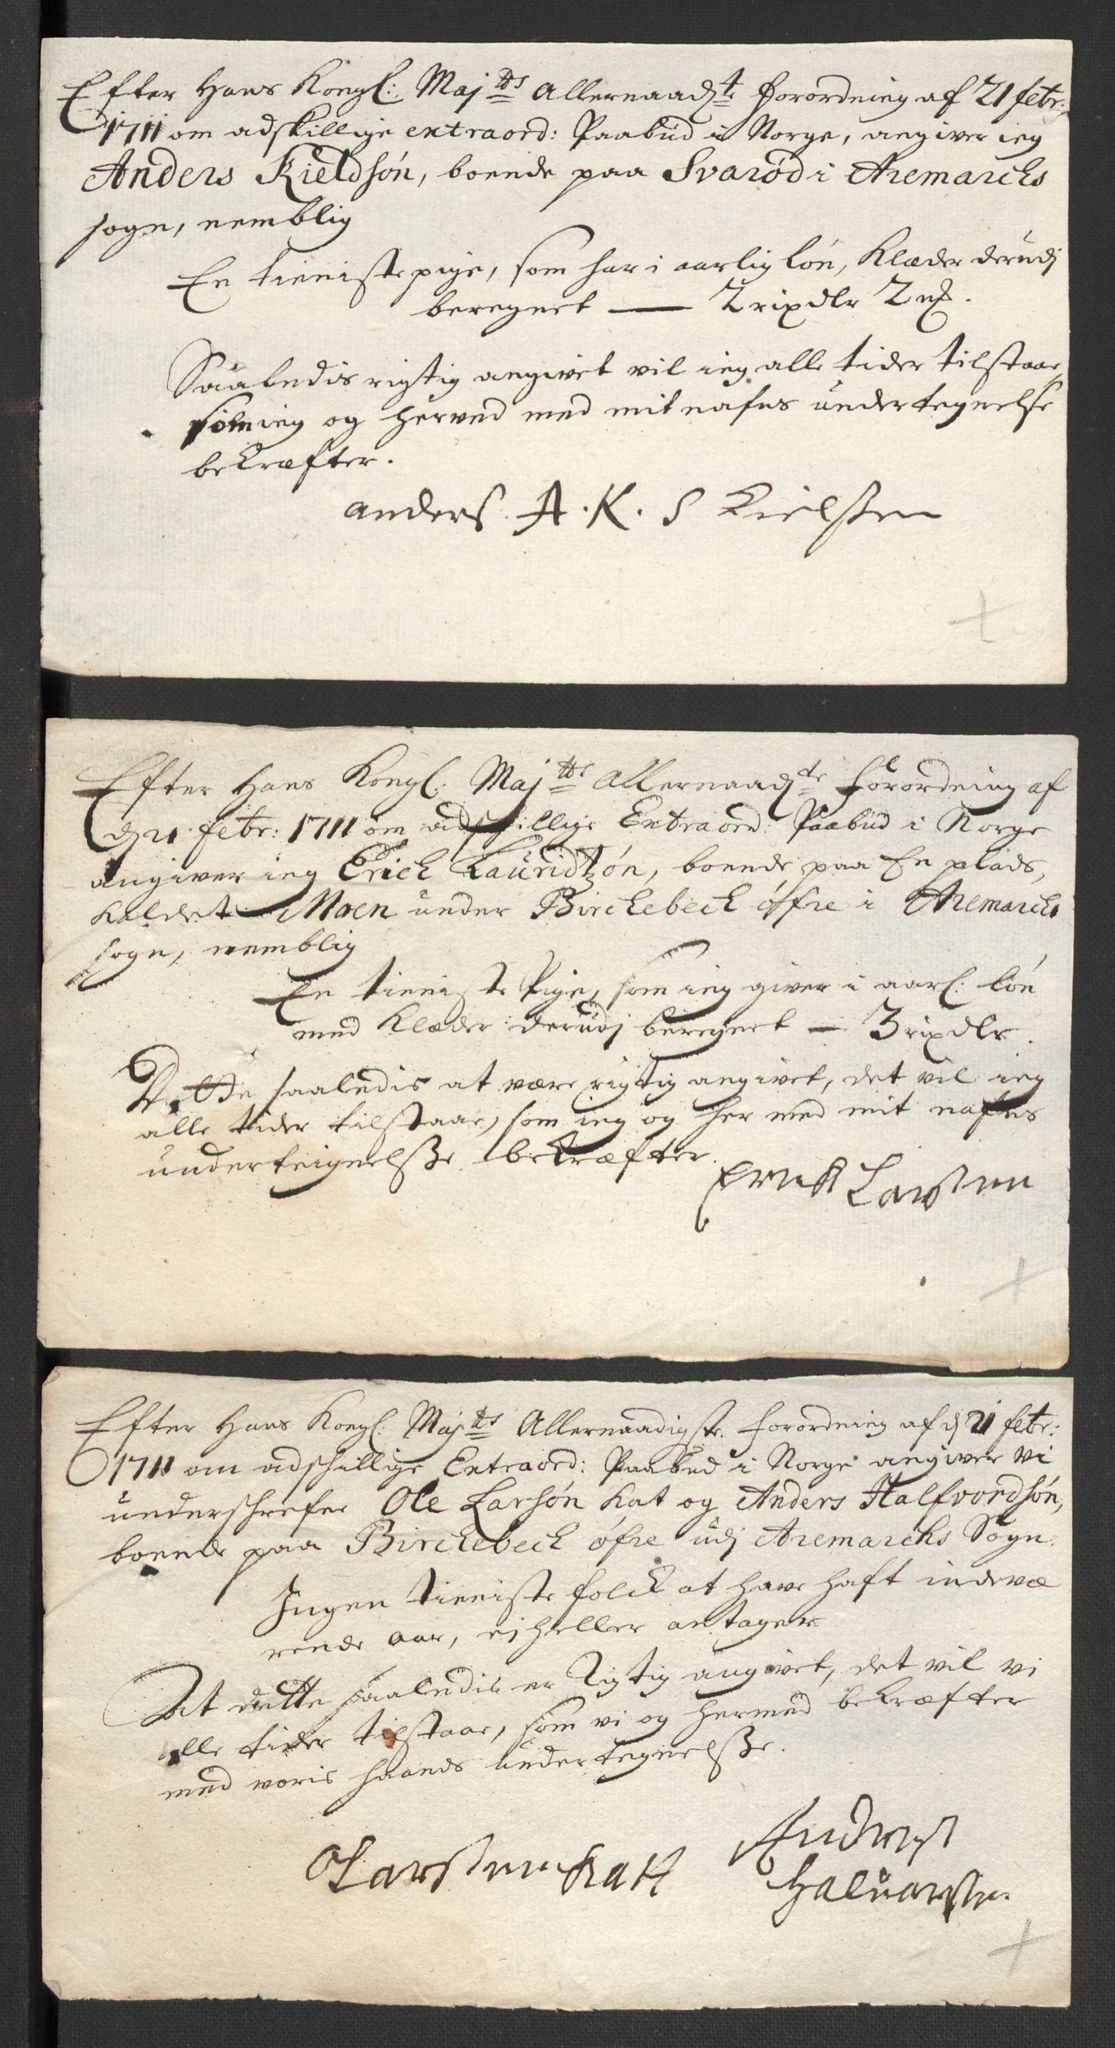 Efter Hans Kongl: Maj.tts Allernaadst. forordning af 21 febr:
1711 om adskillige extraord: Paabud i Norge, angiver ieg
Anders Kieldsøn, boende paa Svarød i Aremarchs
sogn, nemblig
En tieniste pige, som har i aarlig løn, Klæder derudj
beregnet — 2 rixdlr 2 ℳ.
Saaledis rigtig angivet vil ieg alle tider tilstaae,
som ieg og herved med mit nafns undertegnelse
bekræfter.
anders A. K. S Kielssen
Efter Hans Kongl. Maj.tts Allernaadste forordning af
d 21 febr: 1711 om adskillige Extraord: Paabud i Norge
angiver ieg Erich Lauridtzøn, boende paa En plads,
kaldet Moen under Birckebeck øfre i Aremarchs
sogn, nemblig
En tieniste Pige, som ieg giver i aarl: løn
med Klæder derudj beregnet — 3 rixdlr.
Dette saaledis at være rigtig angivet, det vil ieg
alle tider tilstaae, som ieg og her med mit nafns
underteignelsse bekræfter.
Erick Larssen
Efter Hans Kongl. Maj.tts Allernaadigste. forordning af d 21 febr:
1711 om adschillige Extraord: Paabud i Norge angiver vi
underschrefne Ole Larsøn Kat og Anders Halfvordsøn,
boende paa Birckebeck øfre udj Aremarchs Sogn.
Ingen tieniste folck at have haft indevæ
rende aar, ej heller antager
At dette saaledis er Rigtig angivet, det vil vi
alle tider tilstaae, som vi og hermed bekræfter
med voris haands undertegnelsse.
O Larssen Katt
Anders
Haluorsen